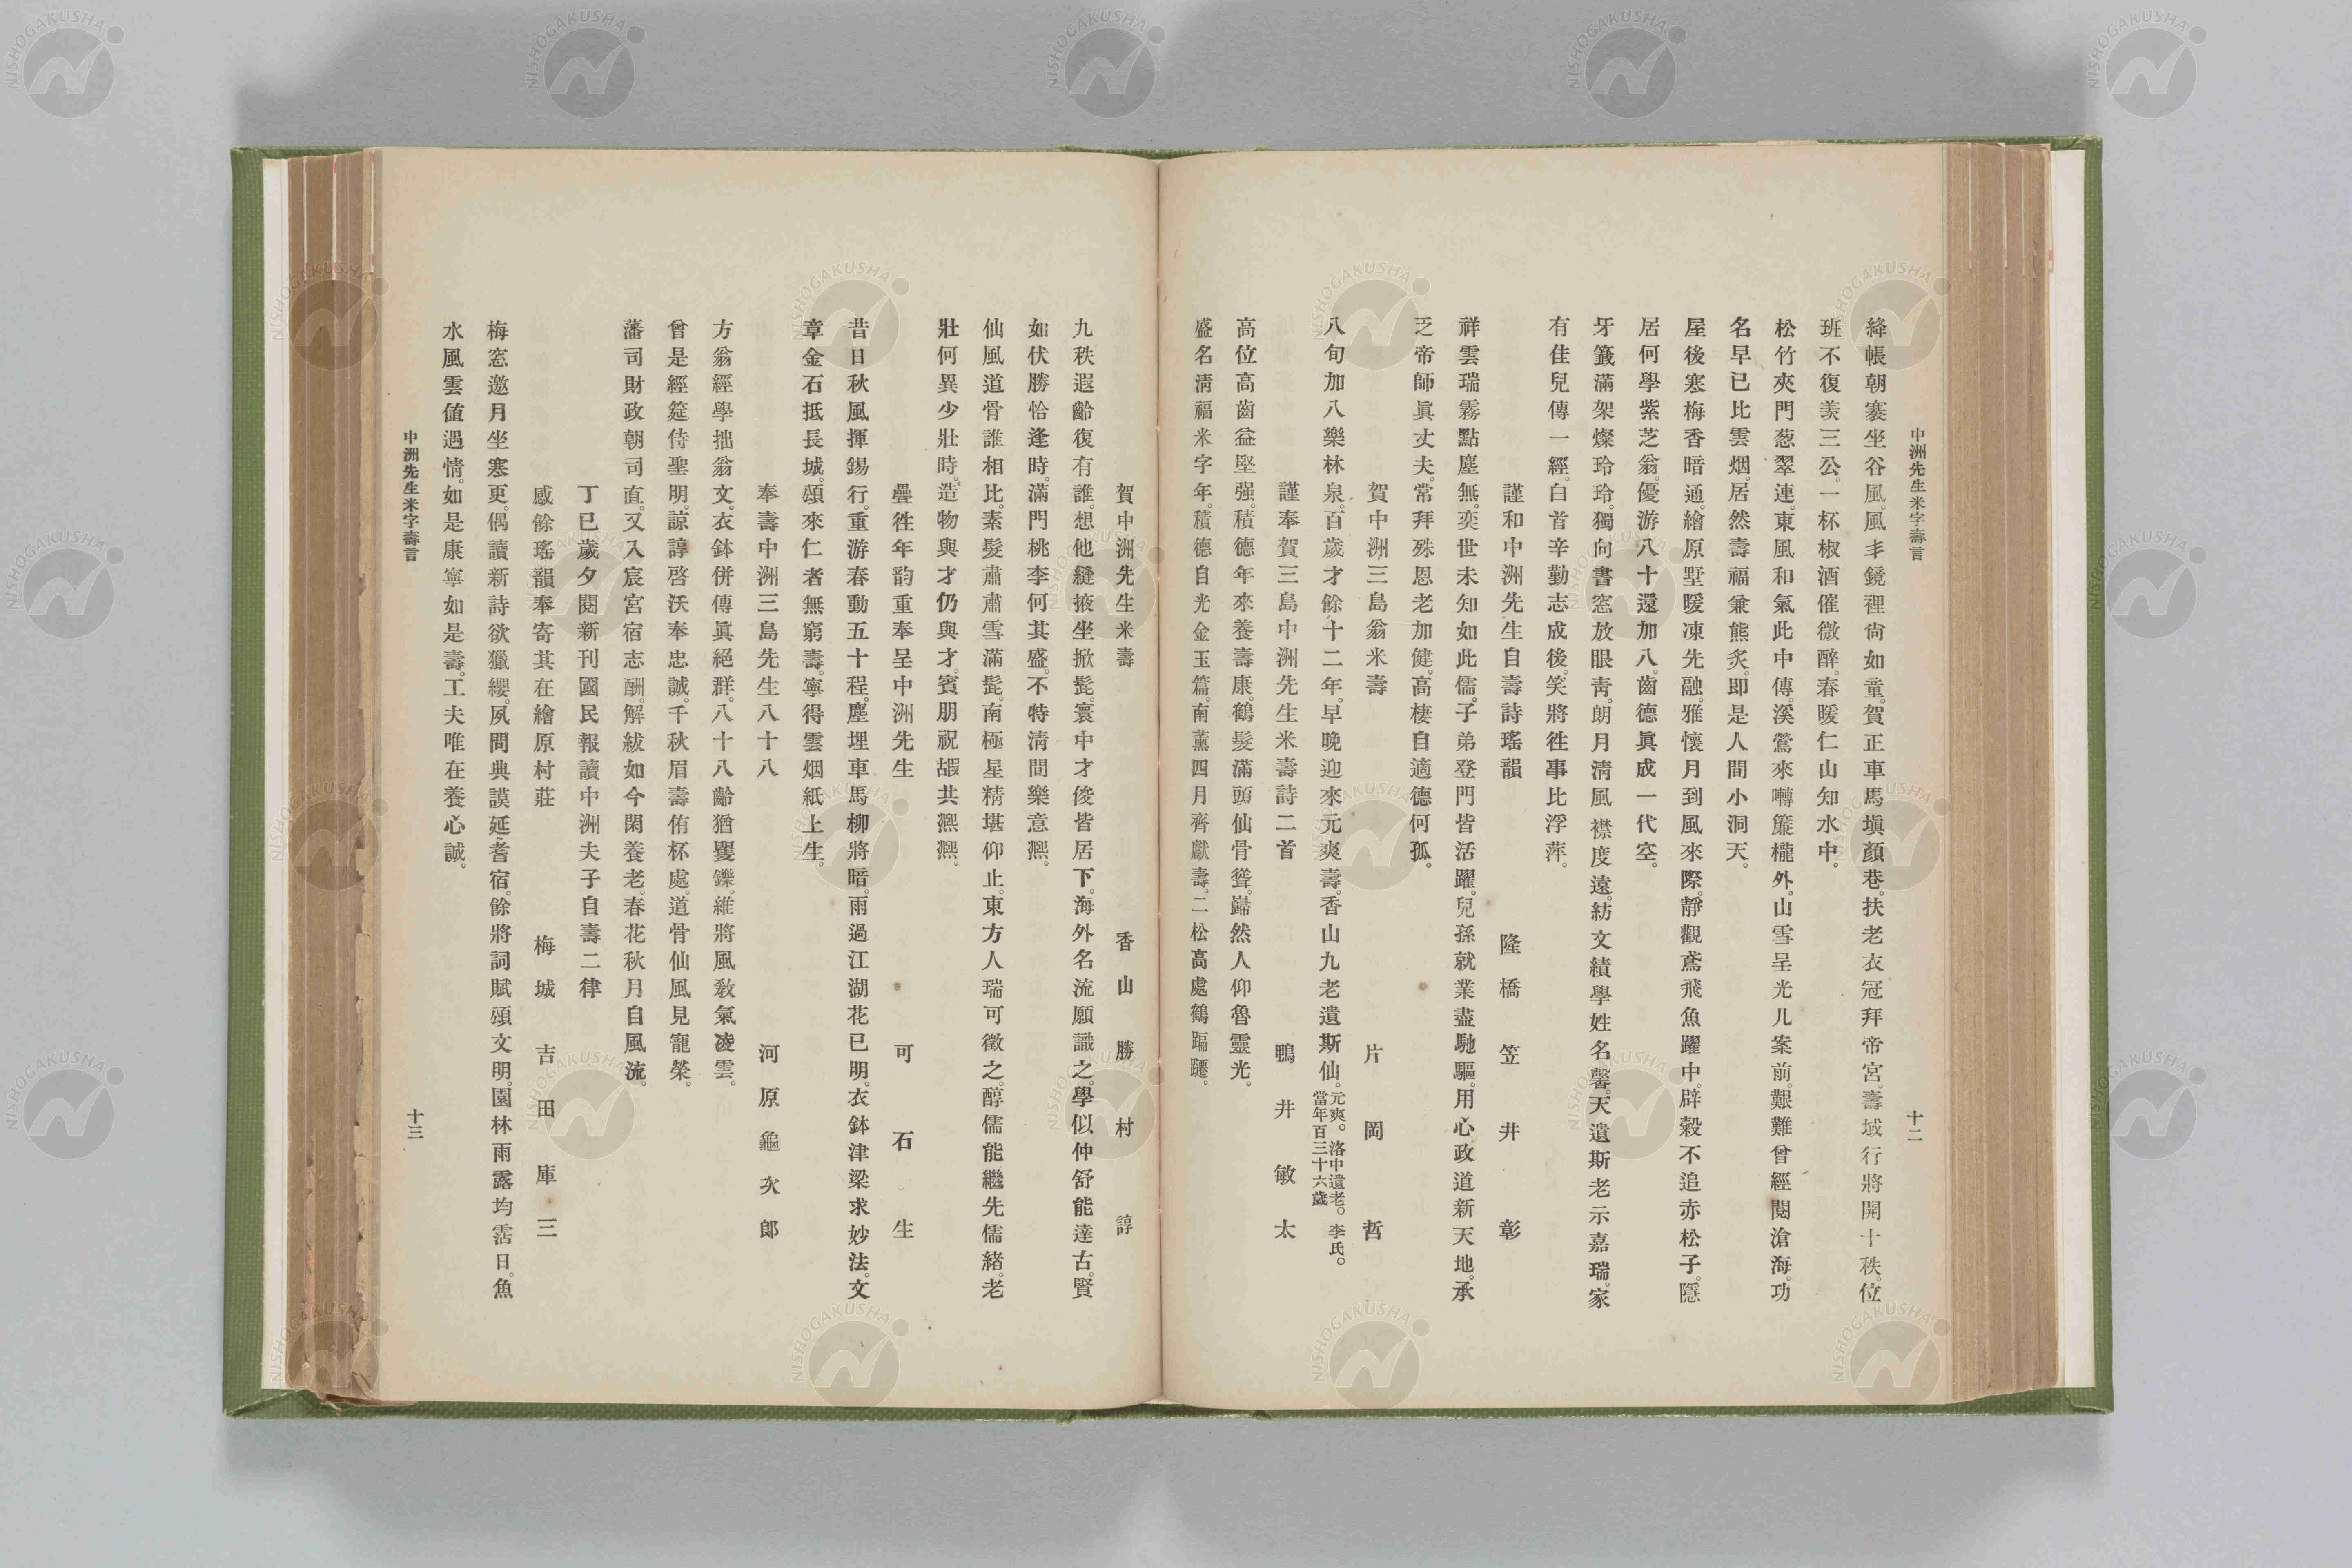 中洲先生米字壽言
十二
絳帳朝褰坐谷風。風丰鏡裡尙如童。賀正車馬塡顏巷。扶老衣冠拜帝宮。壽域行將開十秩。位
班不復羨三公。一杯椒酒催微醉。春暖仁山知水中。
松竹夾門葱翠連。東風和氣此中傳。溪鶯來囀簾櫳外。山雪呈光几案前。艱難曾經閱滄海。功
名早已比雲烟。居然壽福兼熊炙。即是人間小洞天。
屋後寒梅香暗通。繪原墅暖凍先融。雅懷月到風來際。靜觀鳶飛魚躍中。辟穀不追赤松子。隱
居何學紫芝翁。優游八十還加八。齒德眞成一代空。
牙籤滿架燦玲玲。獨向書窓放眼靑。朗月淸風襟度遠。紡文績學姓名馨。天遣斯老示嘉瑞。家
有佳兒傳一經。白首辛勤志成後。笑將徃事比浮萍。
謹和中洲先生自壽詩瑤韻
隆橋笠井彰
祥雲瑞霧點塵無。奕世未知如此儒。子弟登門皆活躍。兒孫就業盡馳驅。用心政道新天地。承
乏帝師眞丈夫。常拜殊恩老加健。高棲自適德何孤。
賀中洲三島翁米壽
片岡哲
八旬加八樂林泉。百歲才餘十二年。早晚迎來元爽壽。香山九老遺斯仙。元爽。洛中遺老。李氏。
當年百三十六歲
謹奉賀三島中洲先生米壽詩二首
鴨井敏太
高位高齒益堅强。積德年來養壽康。鶴髮滿頭仙骨聳。巋然人仰魯靈光。
盛名淸福米字年。積德自光金玉篇。南薰四月齊獻壽。二松高處鶴蹁躚。
賀中洲先生米壽
香山勝村諄
九秩遐齡復有誰。想他縫掖坐掀髭。寰中才俊皆居下。海外名流願識之。學似仲舒能達古。賢
如伏勝恰逢時。滿門桃李何其盛。不特淸間樂意凞。
仙風道骨誰相比。素髮肅肅雪滿髭。南極星精堪仰止。東方人瑞可徵之。醇儒能繼先儒緒。老
壯何異少壯時。造物與才仍與才。賓朋祝嘏共凞凞。
疊徃年韵重奉呈中洲先生
可石生
昔日秋風揮錫行。重游春動五十程。塵埋車馬柳將暗。雨過江湖花已明。衣鉢津梁求妙法。文
章金石抵長城。頌來仁者無窮壽。寧得雲烟紙上生。
奉壽中洲三島先生八十八
河原龜次郞
方翁經學拙翁文。衣鉢併傳眞絕群。八十八齡猶矍鑠。維將風敎氣凌雲。
曾是經筵侍聖明。諒諄啓沃奉忠誠。千秋眉壽侑杯處。道骨仙風見寵榮。
藩司財政朝司直。又入宸宮宿志酬。解紱如今閑養老。春花秋月自風流。
丁巳歲夕閱新刊國民報讀中洲夫子自壽二律
感餘瑤韻奉寄其在繪原村莊
梅城吉田庫三
梅窓邀月坐寒更。偶讀新詩欲獵纓。夙問典謨延耆宿。餘將詞賦頌文明。園林雨露均霑日。魚
水風雲値遇情。如是康寧如是壽。工夫唯在養心誠。
中洲先生米字壽言
十三